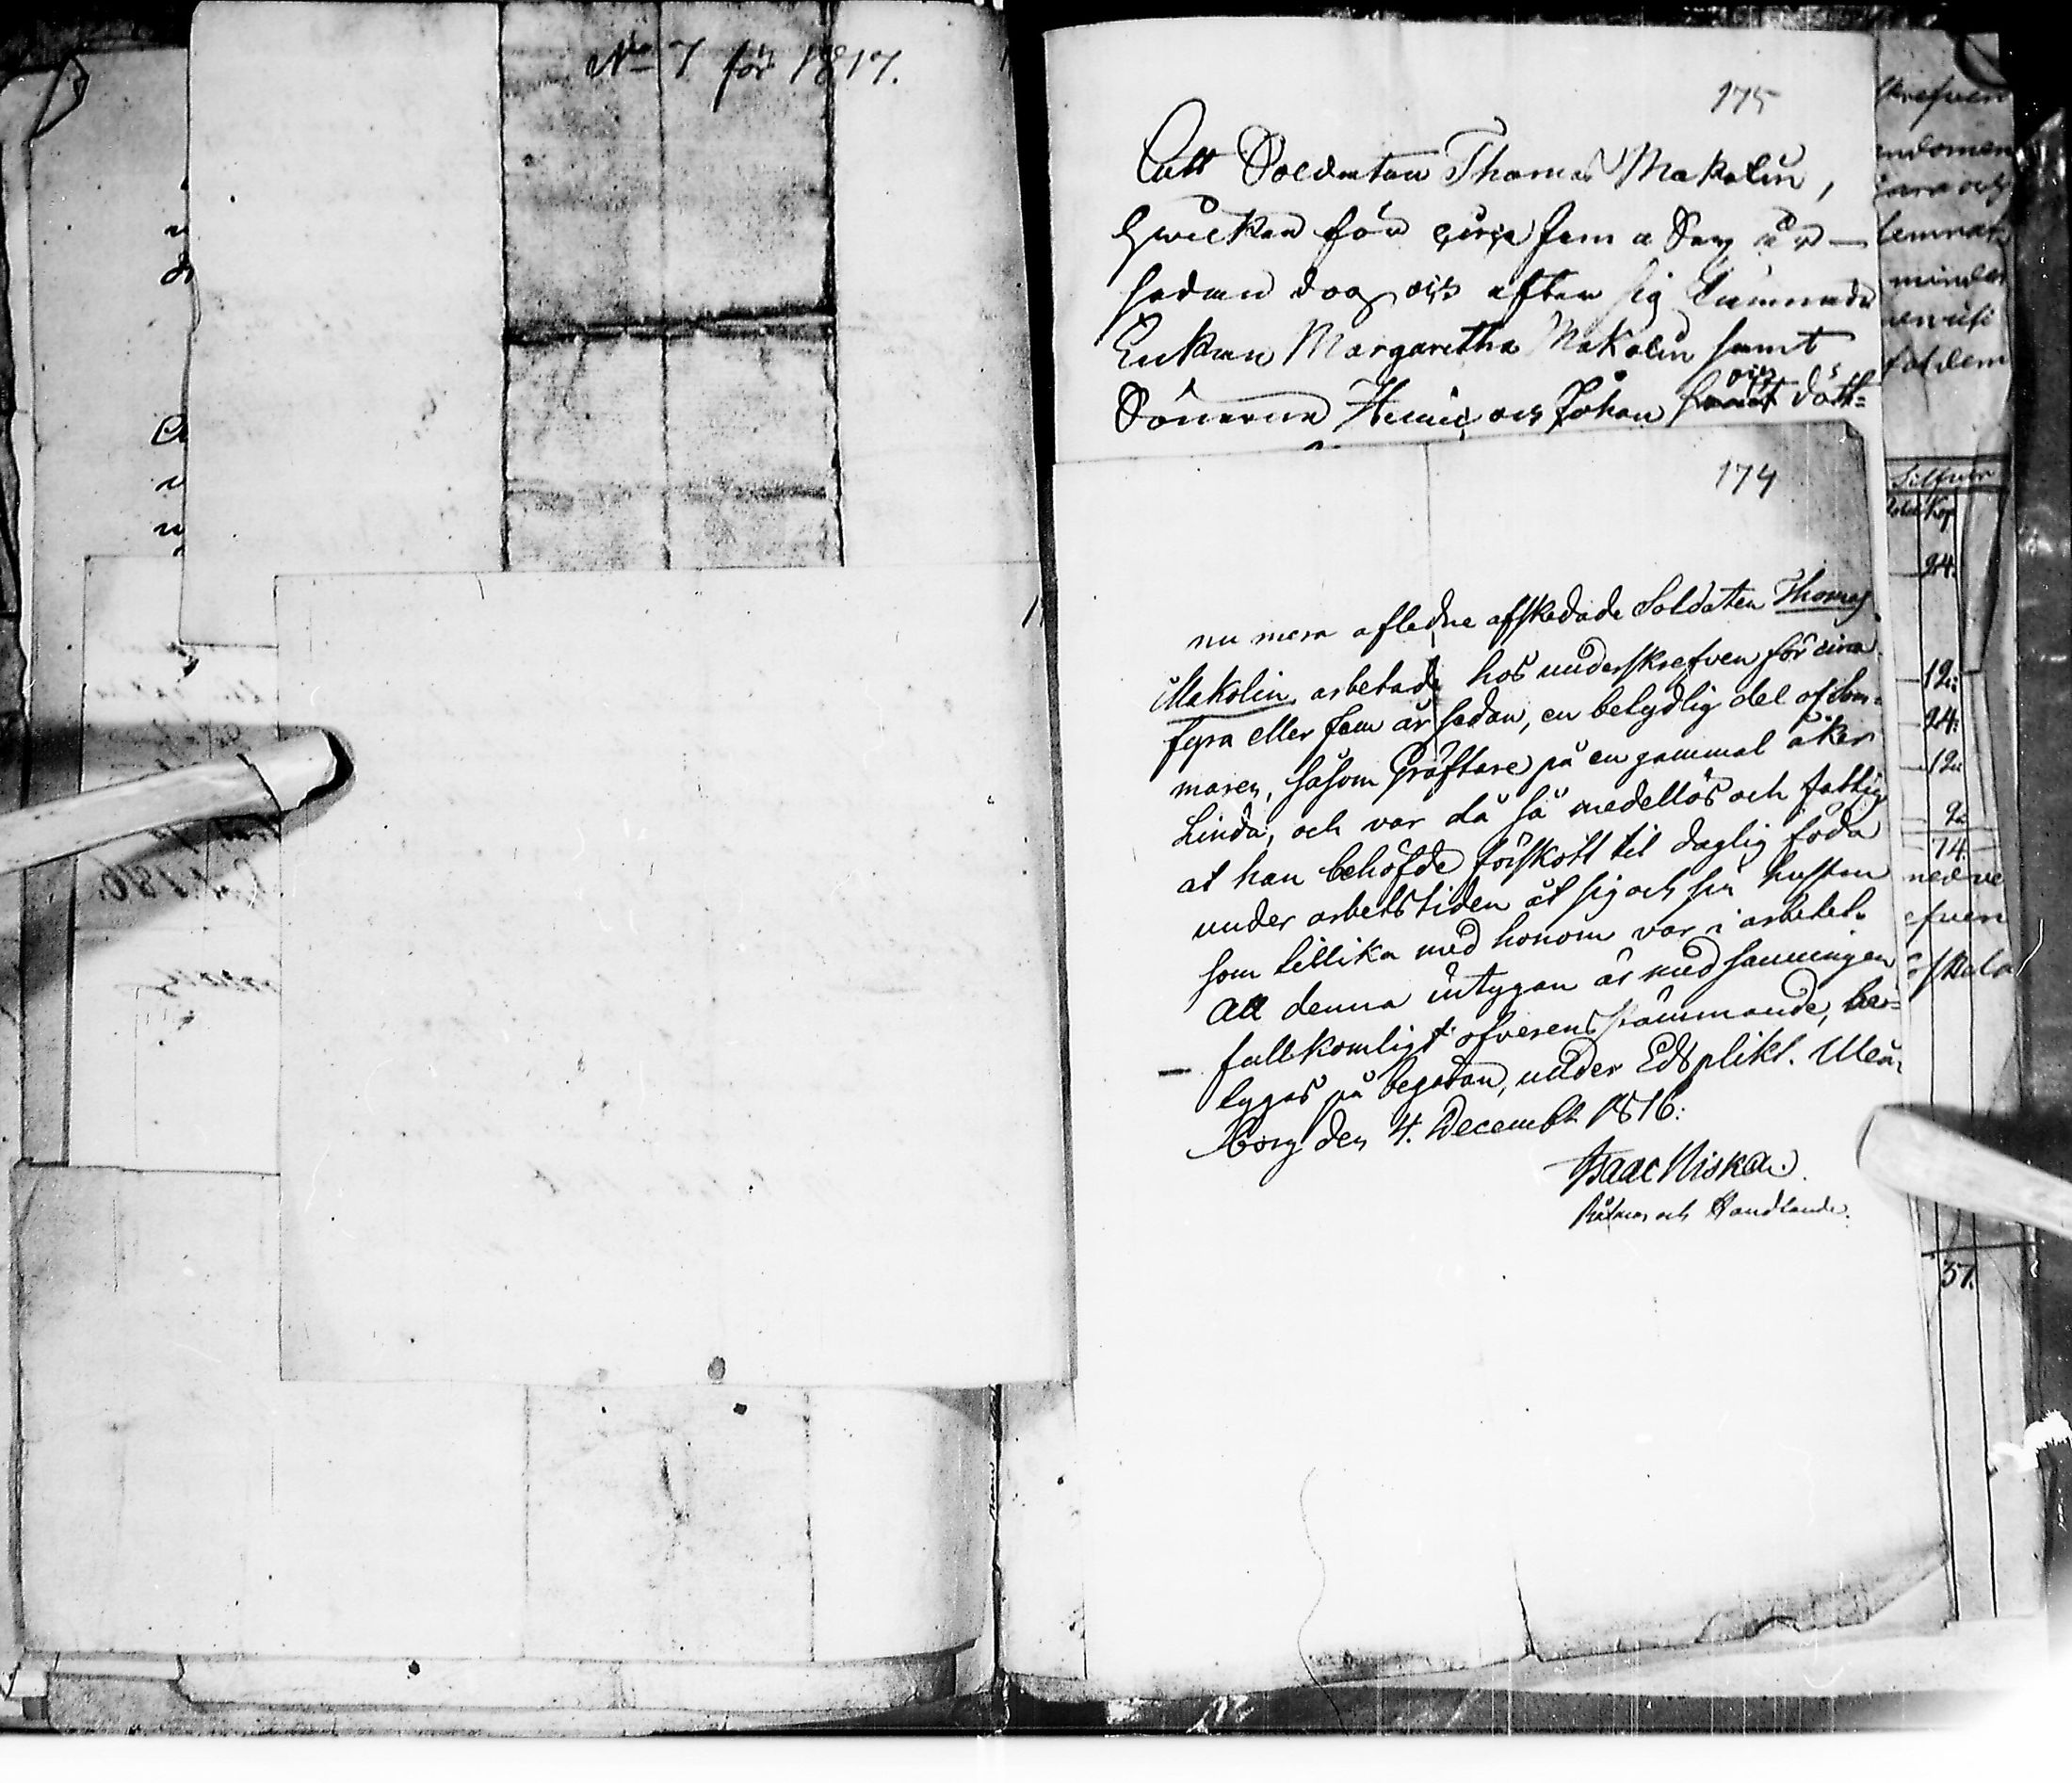 No 7 för 1817.
175
Att Soldaten Thomas Makolin,
hwilken för circa fem a Sex år
sedan dog och efter sig lämnade
Enkan Margaretha Makolin samt
Sönerne Henric och Johan samt och dött=
174
nu mera afledne afskedade Soldaten Thomas
Makolin arbetade hos underskrefven för circa
fyra eller fem år sedan, en betydlig del af som=
maren, såsom Gräftare på en gammal åker
Linda, och var då så medellös och fattig
at han behöfde förskott til daglig föda
under arbetstiden åt sig och sin hustru
som tillika med honom var i arbetet.
Att denna intygan är med sanningen
fullkomligt öfverensstämmande, be=
tygas på begäran, under Edsplikt. Uleå
borg den 4. Decembr 1816.
Isaac Niskan.
Rådman och Handlande.
krefven
endomen
minder
fat dem
Silfver
Kop
24.
12.
24.
12.
2.
74.
efven
37.